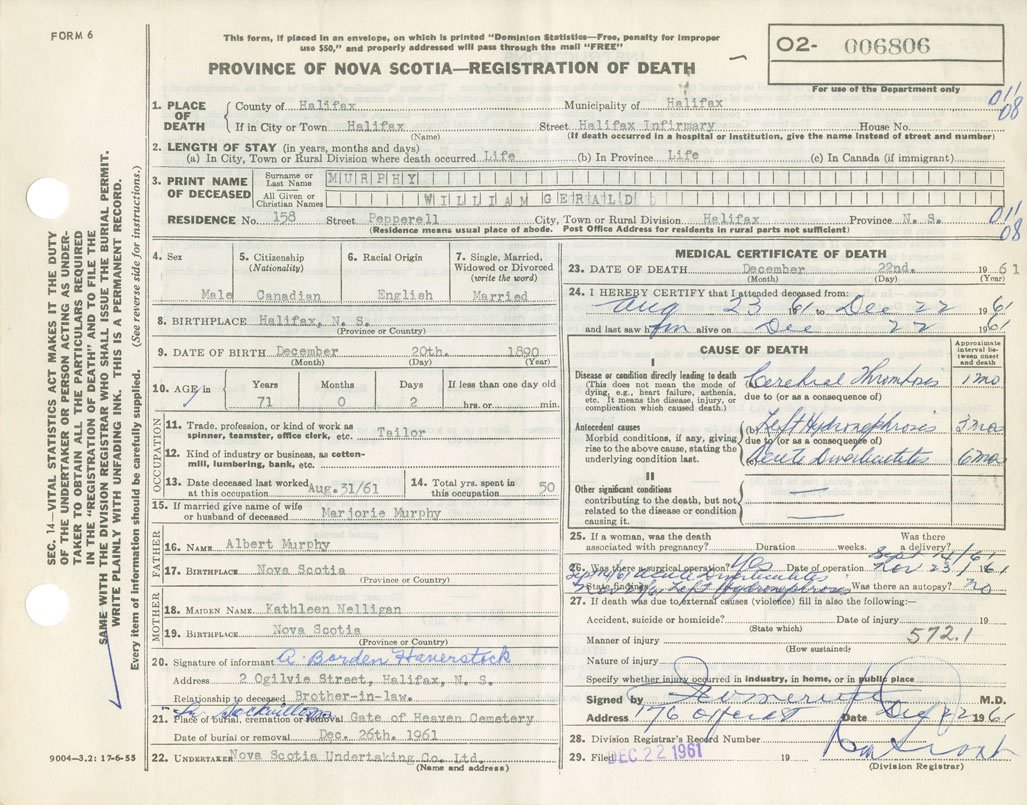 FORM 6
This form, if placed in an envelope, on which is printed "Dominion Statistics—Free, penalty for improper
use $50," and properly addressed will pass through the mail "FREE"
PROVINCE OF NOVA SCOTIA—REGISTRATION OF DEATH
O2- 006806
For use of the Department only
011/08
1. PLACE OF DEATH
County of Halifax Municipality of Halifax
If in City or Town Halifax Street Halifax Infirmary House No.
(Name) (If death occurred in a hospital or institution, give the name instead of street and number)
2. LENGTH OF STAY (in years, months and days)
(a) In City, Town or Rural Division where death occurred Life (b) In Province Life (c) In Canada (if immigrant)
3. PRINT NAME OF DECEASED
Surname or Last Name MURPHY
All Given or Christian Names WILLIAM GERALD
RESIDENCE No. 158 Street Pepperell City, Town or Rural Division Halifax Province N. S.
(Residence means usual place of abode. Post Office Address for residents in rural parts not sufficient)
011/08
4. Sex Male
5. Citizenship (Nationality) Canadian
6. Racial Origin English
7. Single, Married, Widowed or Divorced (write the word) Married
8. BIRTHPLACE Halifax, N. S.
(Province or Country)
9. DATE OF BIRTH December 20th. 1890
(Month) (Day) (Year)
10. AGE in Years Months Days If less than one day old
71 0 2 hrs. or min.
OCCUPATION
11. Trade, profession, or kind of work as
spinner, teamster, office clerk, etc. Tailor
12. Kind of industry or business, as cotton-
mill, lumbering, bank, etc.
13. Date deceased last worked
at this occupation Aug. 31/61
14. Total yrs. spent in
this occupation 50
15. If married give name of wife
or husband of deceased Marjorie Murphy
FATHER
16. NAME Albert Murphy
17. BIRTHPLACE Nova Scotia
(Province or Country)
MOTHER
18. MAIDEN NAME Kathleen Nelligan
19. BIRTHPLACE Nova Scotia
(Province or Country)
20. Signature of informant A. Borden Haverstock
Address 2 Ogilvie Street, Halifax, N. S.
Relationship to deceased Brother-in-law.
21. Place of burial, cremation or removal Gate of Heaven Cemetery
Date of burial or removal Dec. 26th. 1961
22. UNDERTAKER Nova Scotia Undertaking Co. Ltd.
(Name and address)
MEDICAL CERTIFICATE OF DEATH
23. DATE OF DEATH December 22nd. 1961
(Month) (Day) (Year)
24. I HEREBY CERTIFY that I attended deceased from:
Aug 23 61 to Dec 22 1961
and last saw him alive on Dec 22 1961
CAUSE OF DEATH
Approximate interval between onset and death
I
Disease or condition directly leading to death
(This does not mean the mode of
dying, e.g., heart failure, asthenia,
etc. It means the disease, injury, or
complication which caused death.)
(a) Cerebral Thrombosis 1 mo
due to (or as a consequence of)
Antecedent causes
Morbid conditions, if any, giving
rise to the above cause, stating the
underlying condition last.
(b) Left Hydronephrosis mos
due to (or as a consequence of)
(c) Acute Diverticulitis 6 mos
II
Other significant conditions
contributing to the death, but not
related to the disease or condition
causing it.
25. If a woman, was the death
associated with pregnancy? Duration weeks. Was there
a delivery?
26. Was there a surgical operation? Yes Date of operation Sept 14/61 Nov 23/1961
State findings Sept 14/61 Acute Diverticulitis
Left Hydronephrosis Was there an autopsy? no
27. If death was due to external causes (violence) fill in also the following:—
Accident, suicide or homicide? Date of injury 19
(State which)
Manner of injury 572.1
(How sustained)
Nature of injury
Specify whether injury occurred in industry, in home, or in public place
Signed by M.D.
Address 176 Date Dec 22 1961
28. Division Registrar's Record Number
29. Filed DEC 22 1961 19
(Division Registrar)
SEC. 14—VITAL STATISTICS ACT MAKES IT THE DUTY
OF THE UNDERTAKER OR PERSON ACTING AS UNDER-
TAKER TO OBTAIN ALL THE PARTICULARS REQUIRED
IN THE "REGISTRATION OF DEATH" AND TO FILE THE
SAME WITH THE DIVISION REGISTRAR WHO SHALL ISSUE THE BURIAL PERMIT.
WRITE PLAINLY WITH UNFADING INK. THIS IS A PERMANENT RECORD.
Every item of information should be carefully supplied. (See reverse side for instructions.)
9004—3.2: 17-6-55